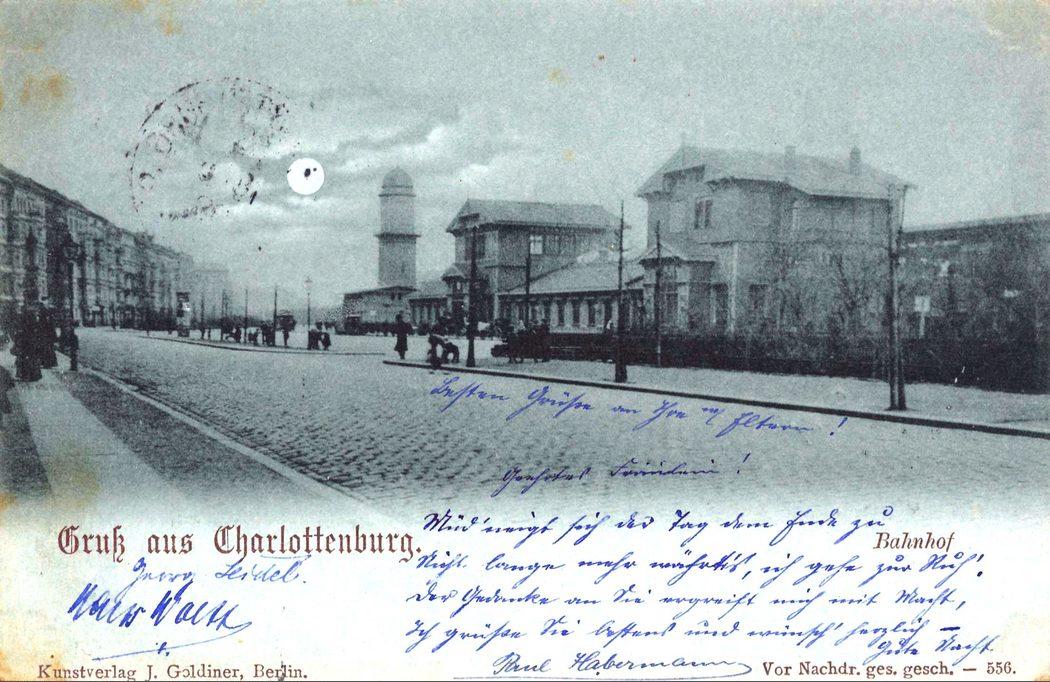 Besten Grüße an Ihre w. Eltern!
Geehrtes Fräulein!
Müd' neigt sich der Tag dem Ende zu
Nicht lange mehr währt's, ich gehe zur Ruh'.
Der Gedanke an Sie ergreift mich mit Macht,
Ich grüße Sie bestens und wünsch' herzlich –
Gute Nacht
Paul Habermann
Gruß aus Charlottenburg.
Bahnhof
Georg Seidel.
Kunstverlag J. Goldiner, Berlin.
Vor Nachdr. ges. gesch. – 556.